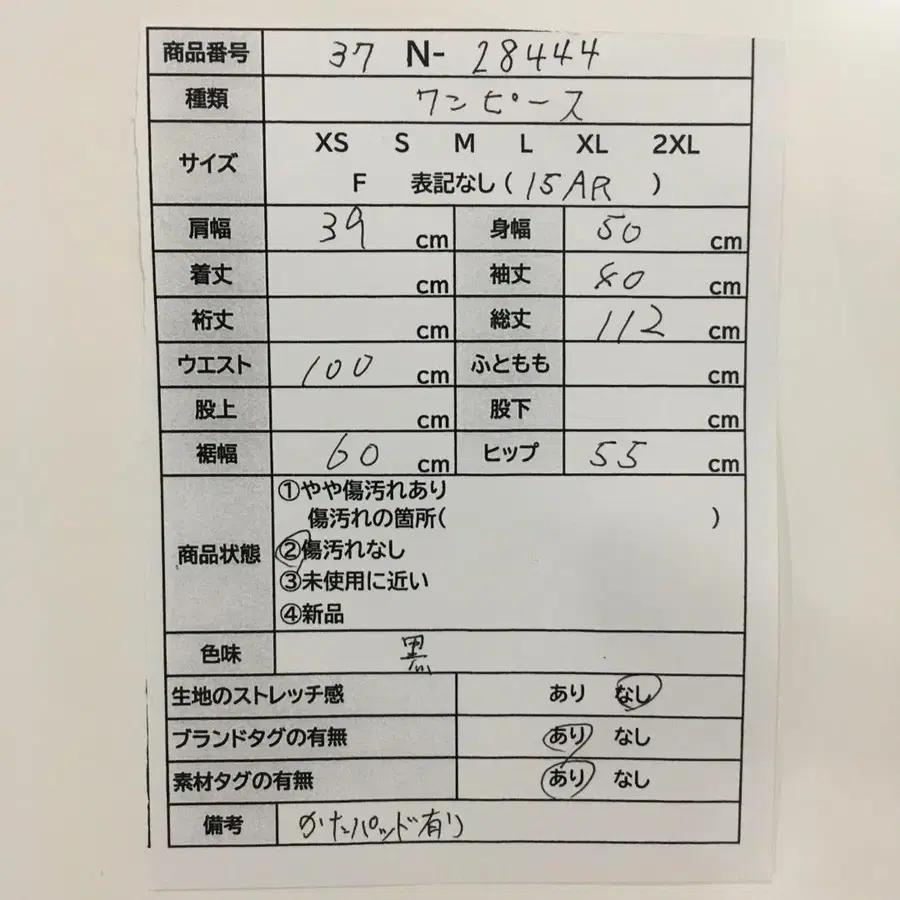 商品番号 37 N- 28444
種類 ワンピース
サイズ XS S M L XL 2XL
F 表記なし ( 15AR )
肩幅 39 cm 身幅 50 cm
着丈 cm 袖丈 40 cm
裄丈 cm 総丈 112 cm
ウエスト 100 cm ふともも cm
股上 cm 股下 cm
裾幅 60 cm ヒップ 55 cm
商品状態 ①やや傷汚れあり
傷汚れの箇所( )
②傷汚れなし
③未使用に近い
④新品
色味 黒
生地のストレッチ感 あり なし
ブランドタグの有無 あり なし
素材タグの有無 あり なし
備考 かたパッド有り